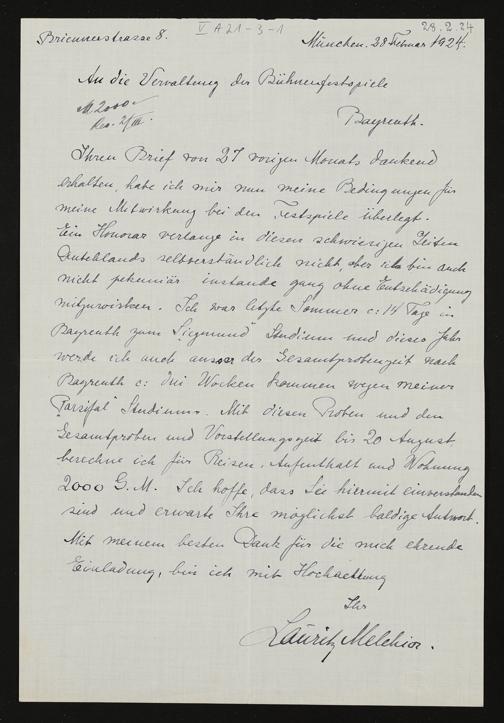 V A 21-3-1
28.2.24
Briennerstrasse 8.
München. 28 Februar 1924.
An die Verwaltung der Bühnenfestspiele
M. 2000.-
Bayreuth.
Ihren Brief von 27 vorigen Monats dankend
erhalten, habe ich mir nun meine Bedingungen für
meine Mitwirkung bei den Festspiele überlegt.
Ein Honorar verlange in diesen schwierigen Zeiten
Deutschlands selbverständlich nicht, aber ich bin auch
nicht pekuniär instande ganz ohne Entschädigung
mitzuwirken. Ich war letzte Sommer c: 14 Tage in
Bayreuth zum "Siegmund" Studium und dieses Jahr
werde ich auch ausser der Gesamtprobenzeit nach
Bayreuth c: drei Wochen kommen wegen meiner
"Parsifal" Studiums. Mit diesen Proben und den
Gesamtproben und Vorstellungszeit bis 20 August,
berechne ich für Reisen, Aufenthalt und Wohnung
2000 G.M. Ich hoffe, dass Sie hiermit einverstanden
sind und erwarte Ihre möglichst baldige Antwort.
Mit meinem besten Dank für die mich ehrende
Einladung, bin ich mit Hochachtung
Ihr
Lauritz Melchior.